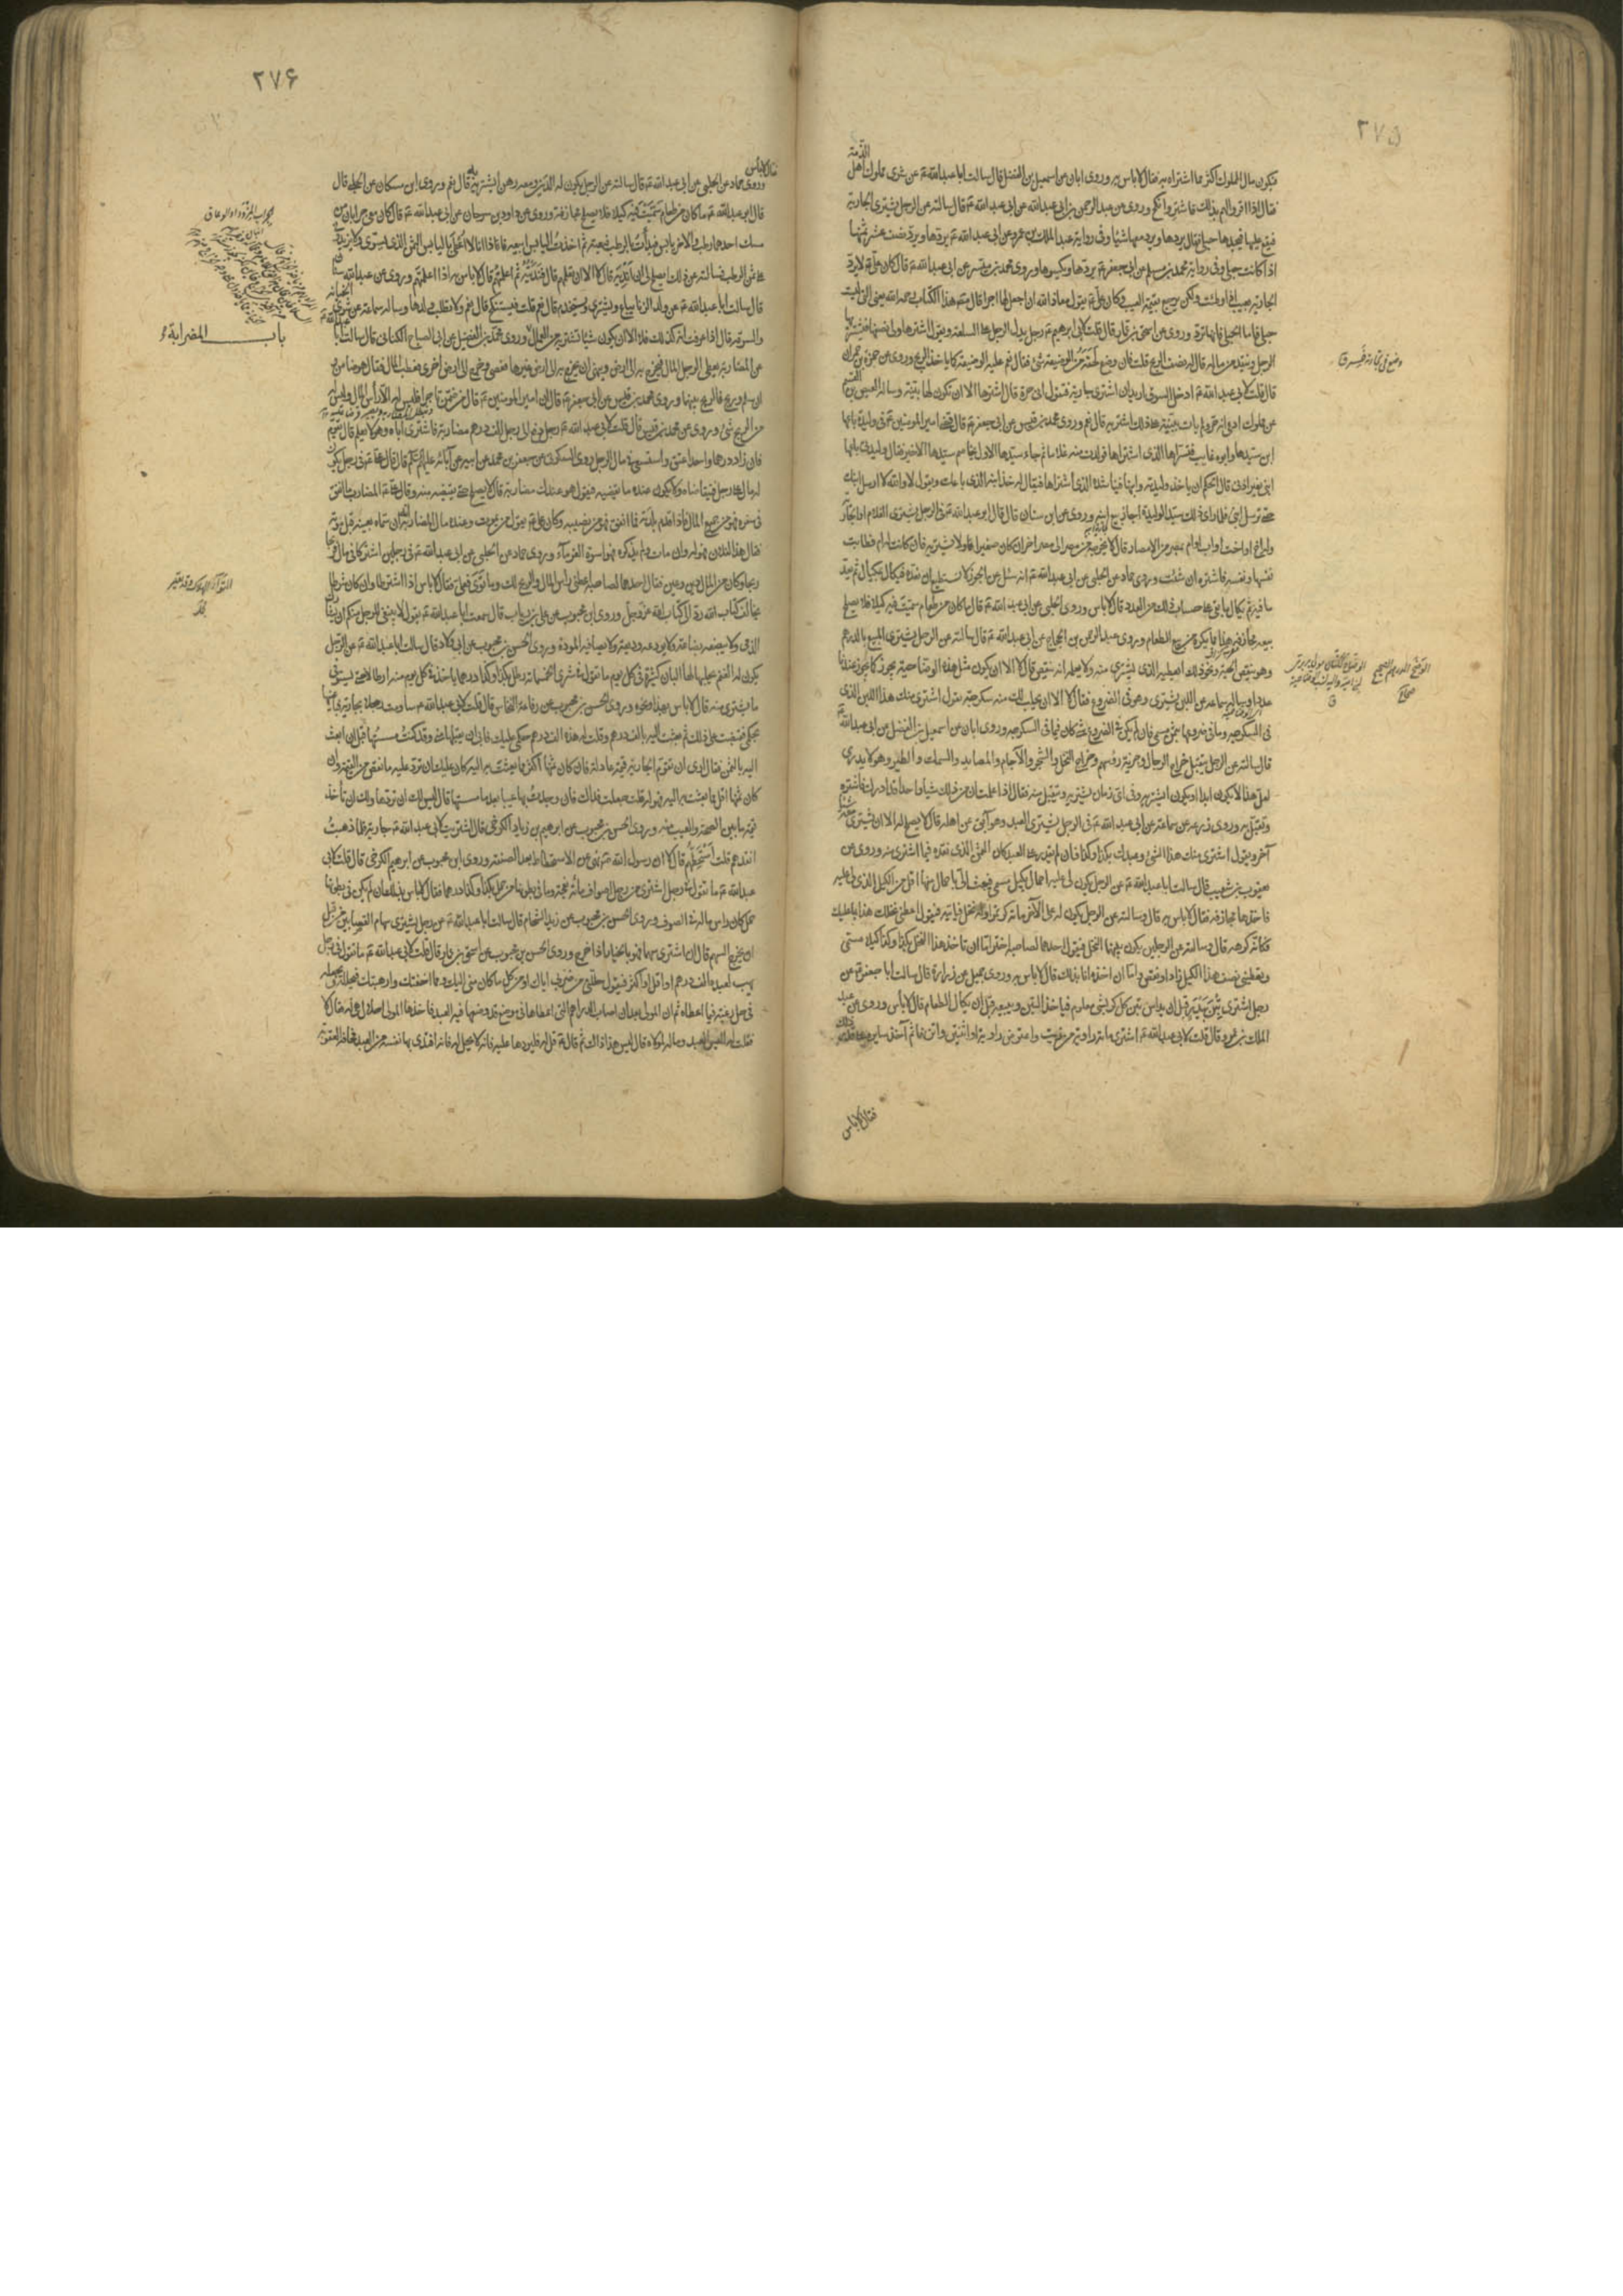 ٢٧٥
فيكون مال المملوك اكثر مما اشتراه به فقال لا باس به وروى ابان عن اسمعيل بن الفضل قال سالت ابا عبد الله ع عن شرى مملوك اهل الذمة
فقال اذا اقروا لهم بذلك فاشتر وانكح وروى عن عبد الرحمن بن ابى عبد الله عن ابى عبد الله ع قال سالته عن الرجل يشترى الجارية
فيقع عليها فيجدها حبلى فقال يردها ويرد معها شيئا وفى رواية عبد الملك بن عمرو عن ابى عبد الله ع يردها ويرد نصف عشر ثمنها
اذا كانت حبلى وفى رواية محمد بن مسلم عن ابى جعفر ع يردها ويكسوها وروى محمد بن ميسر عن ابى عبد الله ع قال كان على ع لا يرد
الجارية بعيب اذا وطئت ولكن يرجع بقيمة العيب وكان على ع يقول معاذ الله ان اجعل لها اجرا قال
حبلى فاما الحبلى فانها ترد وروى عن اسحق بن عمار قال قلت لابى ابرهيم ع رجل يدل الرجل على السلعة ويقول اشترها ولى نصفها فيشتريها
الرجل وينقد من ماله قال له نصف الربح قلت فان وضع لحقه من الوضيعة شئ فقال نعم عليه الوضيعة كما ياخذ الربح وروى عن حمزة بن حمران
قال قلت لابى عبد الله ع ادخل السوق اريد ان اشترى جارية فتقول انى حرة قال اشترها الا ان تكون لها بينة وساله العيص بن القسم
عن مملوك ادعى انه حر ولم يات ببينة على ذلك اشتريه قال نعم وروى محمد بن قيس عن ابى جعفر ع قال قضى امير المومنين ع فى وليدة باعها
ابن سيدها وابوه غايب فتسراها الذى اشتراها فولدت منه غلاما ثم جاء سيدها الاول يخاصم سيدها الاخير فقال وليدتى باعها
ابنى بغير اذنى قال الحكم ان ياخذ وليدته وابنها فناشده الذى اشتراها فقال له خذ ابنه الذى باعك ويقول لا والله لا ارسل ابنك
حتى ترسل ابنى فلما راى ذلك سيد الوليدة اجاز بيع ابنه وروى عن ابن سنان قال قال ابو عبد الله ع فى الرجل يشترى الغلام او الجارية
وله اخ او اخت او اب او ام بمصر من الامصار قال لا يخرجه من مصر الى مصر اخر ان كان صغيرا ولا تشتريه فان كانت له ام فطابت
نفسها ونفسه فاشتره ان شئت وروى حماد عن الحلبى عن ابى عبد الله ع انه سئل عن الجوز لا نستطيع ان نعده فيكال بمكيال ثم يعد
ما فيه ثم يكال ما بقى على حساب ذلك من العدد قال لا باس وروى الحلبى عن ابى عبد الله ع قال ما كان من طعام سميت فيه كيلا فلا يصلح
بيعه مجازفة هذا مما يكره من بيع الطعام وروى عبد الرحمن بن الحجاج عن ابى عبد الله ع قال سالته عن الرجل يشترى المبيع بالدرهم
وهو ينقص الحبة ونحو ذلك ايعطيه الذى يشترى منه ولا يعلمه انه ينقص قال لا الا ان يكون مثل هذه الوضاحية يجوز كما يجوز عندنا
عددا وساله سماعة عن اللبن يشترى وهو فى الضروع فقال لا الا ان يحلب لك منه سكرجة يقول اشترى منك هذا اللبن الذى
فى السكرجة وما فى ضروعها بثمن مسمى فان لم يكن فى الضروع شئ كان فيما فى السكرجة وروى ابان عن اسمعيل بن الفضل عن ابى عبد الله ع
قال سالته عن الرجل يتقبل خراج الرجال وجزية رؤسهم وخراج النخل والشجر والآجام والمصايد والسمك والطير وهو لا يدرى
لعل هذا لا يكون ابدا او يكون ايشتريه وفى اى زمان يشتريه ويتقبل منه فقال اذا علمت ان من ذلك شيئا واحدا قد ادرك فاشتره
وتقبل به وروى زرعة عن سماعة عن ابى عبد الله ع فى الرجل يشترى العبد وهو آبق عن اهله قال لا يصلح له الا ان يشترى معه شيئا
آخر ويقول اشترى منك هذا الشئ وعبدك بكذا وكذا فان لم يقدر على العبد كان الثمن الذى نقده فيما اشترى منه وروى عن
يعقوب بن شعيب قال سالت ابا عبد الله ع عن الرجل يكون لى عليه احمال بكيل مسمى فيبعث الى باحمال منها اقل من الكيل الذى لى عليه
فاخذها مجازفة فقال لا باس به قال وسالته عن الرجل يكون له على الآخر مائة كر تمرا وله نخل فياتيه فيقول اعطنى نخلك هذا بما عليك
فكانه كرهه قال وسالته عن الرجلين يكون بينهما النخل فيقول احدهما لصاحبه اختر اما ان تاخذ هذا النخل بكذا وكذا كيلا مسمى
وتعطينى نصف هذا الكيل زاد او نقص واما ان آخذه انا بذلك قال لا باس به وروى جميل عن زرارة قال سالت ابا جعفر ع عن
رجل اشترى تبن بيدر قبل ان يداس تبن كل كر بشئ معلوم فياخذ التبن ويبيعه قبل ان يكال الطعام قال لا باس وروى عن عبد
الملك بن عمرو قال قلت لابى عبد الله ع اشترى مائة راوية من زيت واعترض راوية او اثنتين واتزنها ثم آخذ سايره على قدر ذلك
فقال لا باس
وضع فى تجارته خسر ق
٢٧۶
فقال لا باس
وروى حماد عن الحلبى عن ابى عبد الله ع قال سالته عن الرجل يكون له الدين ومعه رهن ايشتريه قال نعم وروى ابن مسكان عن الحلبى قال
قال ابو عبد الله ع ما كان من طعام سميت فيه كيلا فلا يصلح مجازفة وروى عن داود بن سرحان عن ابى عبد الله ع قال كان معى جرابان من
مسك احدهما رطب والاخر يابس فبدات بالرطب فبعته ثم اخذت اليابس ابيعه فاذا انا لا اعطى باليابس الثمن الذى يسوى ولا يزيدونى
على ثمن الرطب فسالته عن ذلك ايصلح لى ان اندّيه قال لا الا ان تعلمهم قال فندّيته ثم اعلمتهم قال لا باس به اذا اعلمتهم وروى عن عبد الله
قال سالت ابا عبد الله ع عن ولد الزنا يباع ويشترى ويستخدم قال نعم قلت فيستنكح قال نعم ولا تطلب ولدها وساله سماعة عن شرى الخيانة
والسرقة قال اذا عرفت انه كذلك فلا الا ان يكون شيئا تشتريه من العمال
باب المضاربة
وروى محمد بن الفضيل عن ابى الصباح الكنانى قال سالت ابا عبد الله ع
عن المضاربة يعطى الرجل المال فيخرج به الى الارض وينهى ان يخرج به الى ارض غيرها فعصى وخرج الى ارض اخرى فعطب المال فقال هو ضامن
ان سلم وربح فالربح بينهما وروى محمد بن قيس عن ابى جعفر ع قال ان امير المومنين ع قال من ضمن تاجرا فليس له الا راس المال وليس له
من الربح شئ وروى عن محمد بن قيس قال قلت لابى عبد الله ع رجل دفع الى رجل الف درهم مضاربة فاشترى اباه وهو لا يعلم قال يقوم
فان زاد درهما واحدا عتق واستسعى فى مال الرجل وروى السكونى عن جعفر بن محمد عن ابيه عن آبائه عليهم السلام قال قال على ع فى رجل يكون
له مال على رجل فيتقاضاه ولا يكون عنده ما يقضيه فيقول هو عندك مضاربة قال لا يصلح حتى يقبضه منه وقال على ع المضارب ما انفق
فى سفره فهو من جميع المال فاذا قدم بلدته فما انفق فهو من نصيبه وكان على ع يقول من يموت وعنده مال المضاربة انه ان سماه بعينه قبل موته
فقال هذا لفلان فهو له وان مات ولم يذكره فهو اسوة الغرماء وروى حماد عن الحلبى عن ابى عبد الله ع فى رجلين اشتركا فى مال
ربحا وكان من المال دين وعين فقال احدهما لصاحبه اعطنى راس المال والربح لك وما توى فعلى فقال لا باس اذا اشترطا وان كان شرطا
يخالف كتاب الله رد الى كتاب الله عز وجل وروى ابن محبوب عن على بن رياب قال سمعت ابا عبد الله ع يقول لا ينبغى للرجل منكم ان يشارك
الذمى ولا يبضعه بضاعة ولا يودعه وديعة ولا يصافيه المودة وروى الحسن بن محبوب عن ابى ولاد قال سالت ابا عبد الله ع عن الرجل
يكون له الغنم يحلبها لها البان كثيرة فى كل يوم ما تقول فى شرى الخمسمائة رطل بكذا وكذا درهما ياخذ فى كل يوم منه ارطالا حتى يستوفى
ما يشترى منه قال لا باس بهذا ونحوه وروى الحسن بن محبوب عن رفاعة النخاس قال قلت لابى عبد الله ع ساومت رجلا بجارية فباعنيها
بحكمى فقبضتها على ذلك ثم بعثت اليه بالف درهم وقلت له هذه الف درهم حكمى عليك فابى ان يقبلها منى وقد كنت مسستها قبل ان ابعث
اليه بالثمن فقال ارى ان تقوم الجارية قيمة عادلة فان كان ثمنها اكثر مما بعثت به اليه كان عليك ان ترد عليه ما نقص من القيمة وان
كان ثمنها اقل مما بعثت به اليه فهو له قلت جعلت فداك فان وجدت بها عيبا بعد ما مسستها قال ليس لك ان تردها ولك ان تاخذ
قيمة ما بين الصحة والعيب منه وروى الحسن بن محبوب عن ابرهيم بن زياد الكرخى قال اشتريت لابى عبد الله ع جارية فلما ذهبت
انقدهم قلت استحطهم قال لا ان رسول الله ص نهى عن الاستحطاط بعد الصفقة وروى ابن محبوب عن ابرهيم الكرخى قال قلت لابى
عبد الله ع ما تقول فى رجل اشترى من رجل اصواف مائة نعجة وما فى بطونها من حمل بكذا وكذا درهما فقال لا باس بذلك ان لم يكن فى بطونها
حمل كان راس ماله فى الصوف وروى الحسن بن محبوب عن زيد الشحام قال سالت ابا عبد الله ع عن رجل يشترى سهام القصابين من قبل
ان يخرج السهم قال ان اشترى سهما فهو بالخيار اذا خرج وروى الحسن بن محبوب عن اسحق بن عمار قال قلت لابى عبد الله ع ما تقول فى رجل
يهب لعبده الف درهم او اقل او اكثر فيقول حللنى من ضربى اياك او من كل ما كان منى اليك ومما اخفتك وارهبتك فيحلله ويجعله
فى حل رغبة فيما اعطاه ثم ان المولى بعد ان اصاب الدراهم التى اعطاها فى موضع قد وضعها فيه العبد فاخذها المولى احلال هى له فقال لا
فقلت له اليس العبد وماله لمولاه قال ليس هذا ذاك ثم قال ع قل له فليردها عليه فانه لا يحل له فانه افتدى بها نفسه من العبد مخافة العقوبة